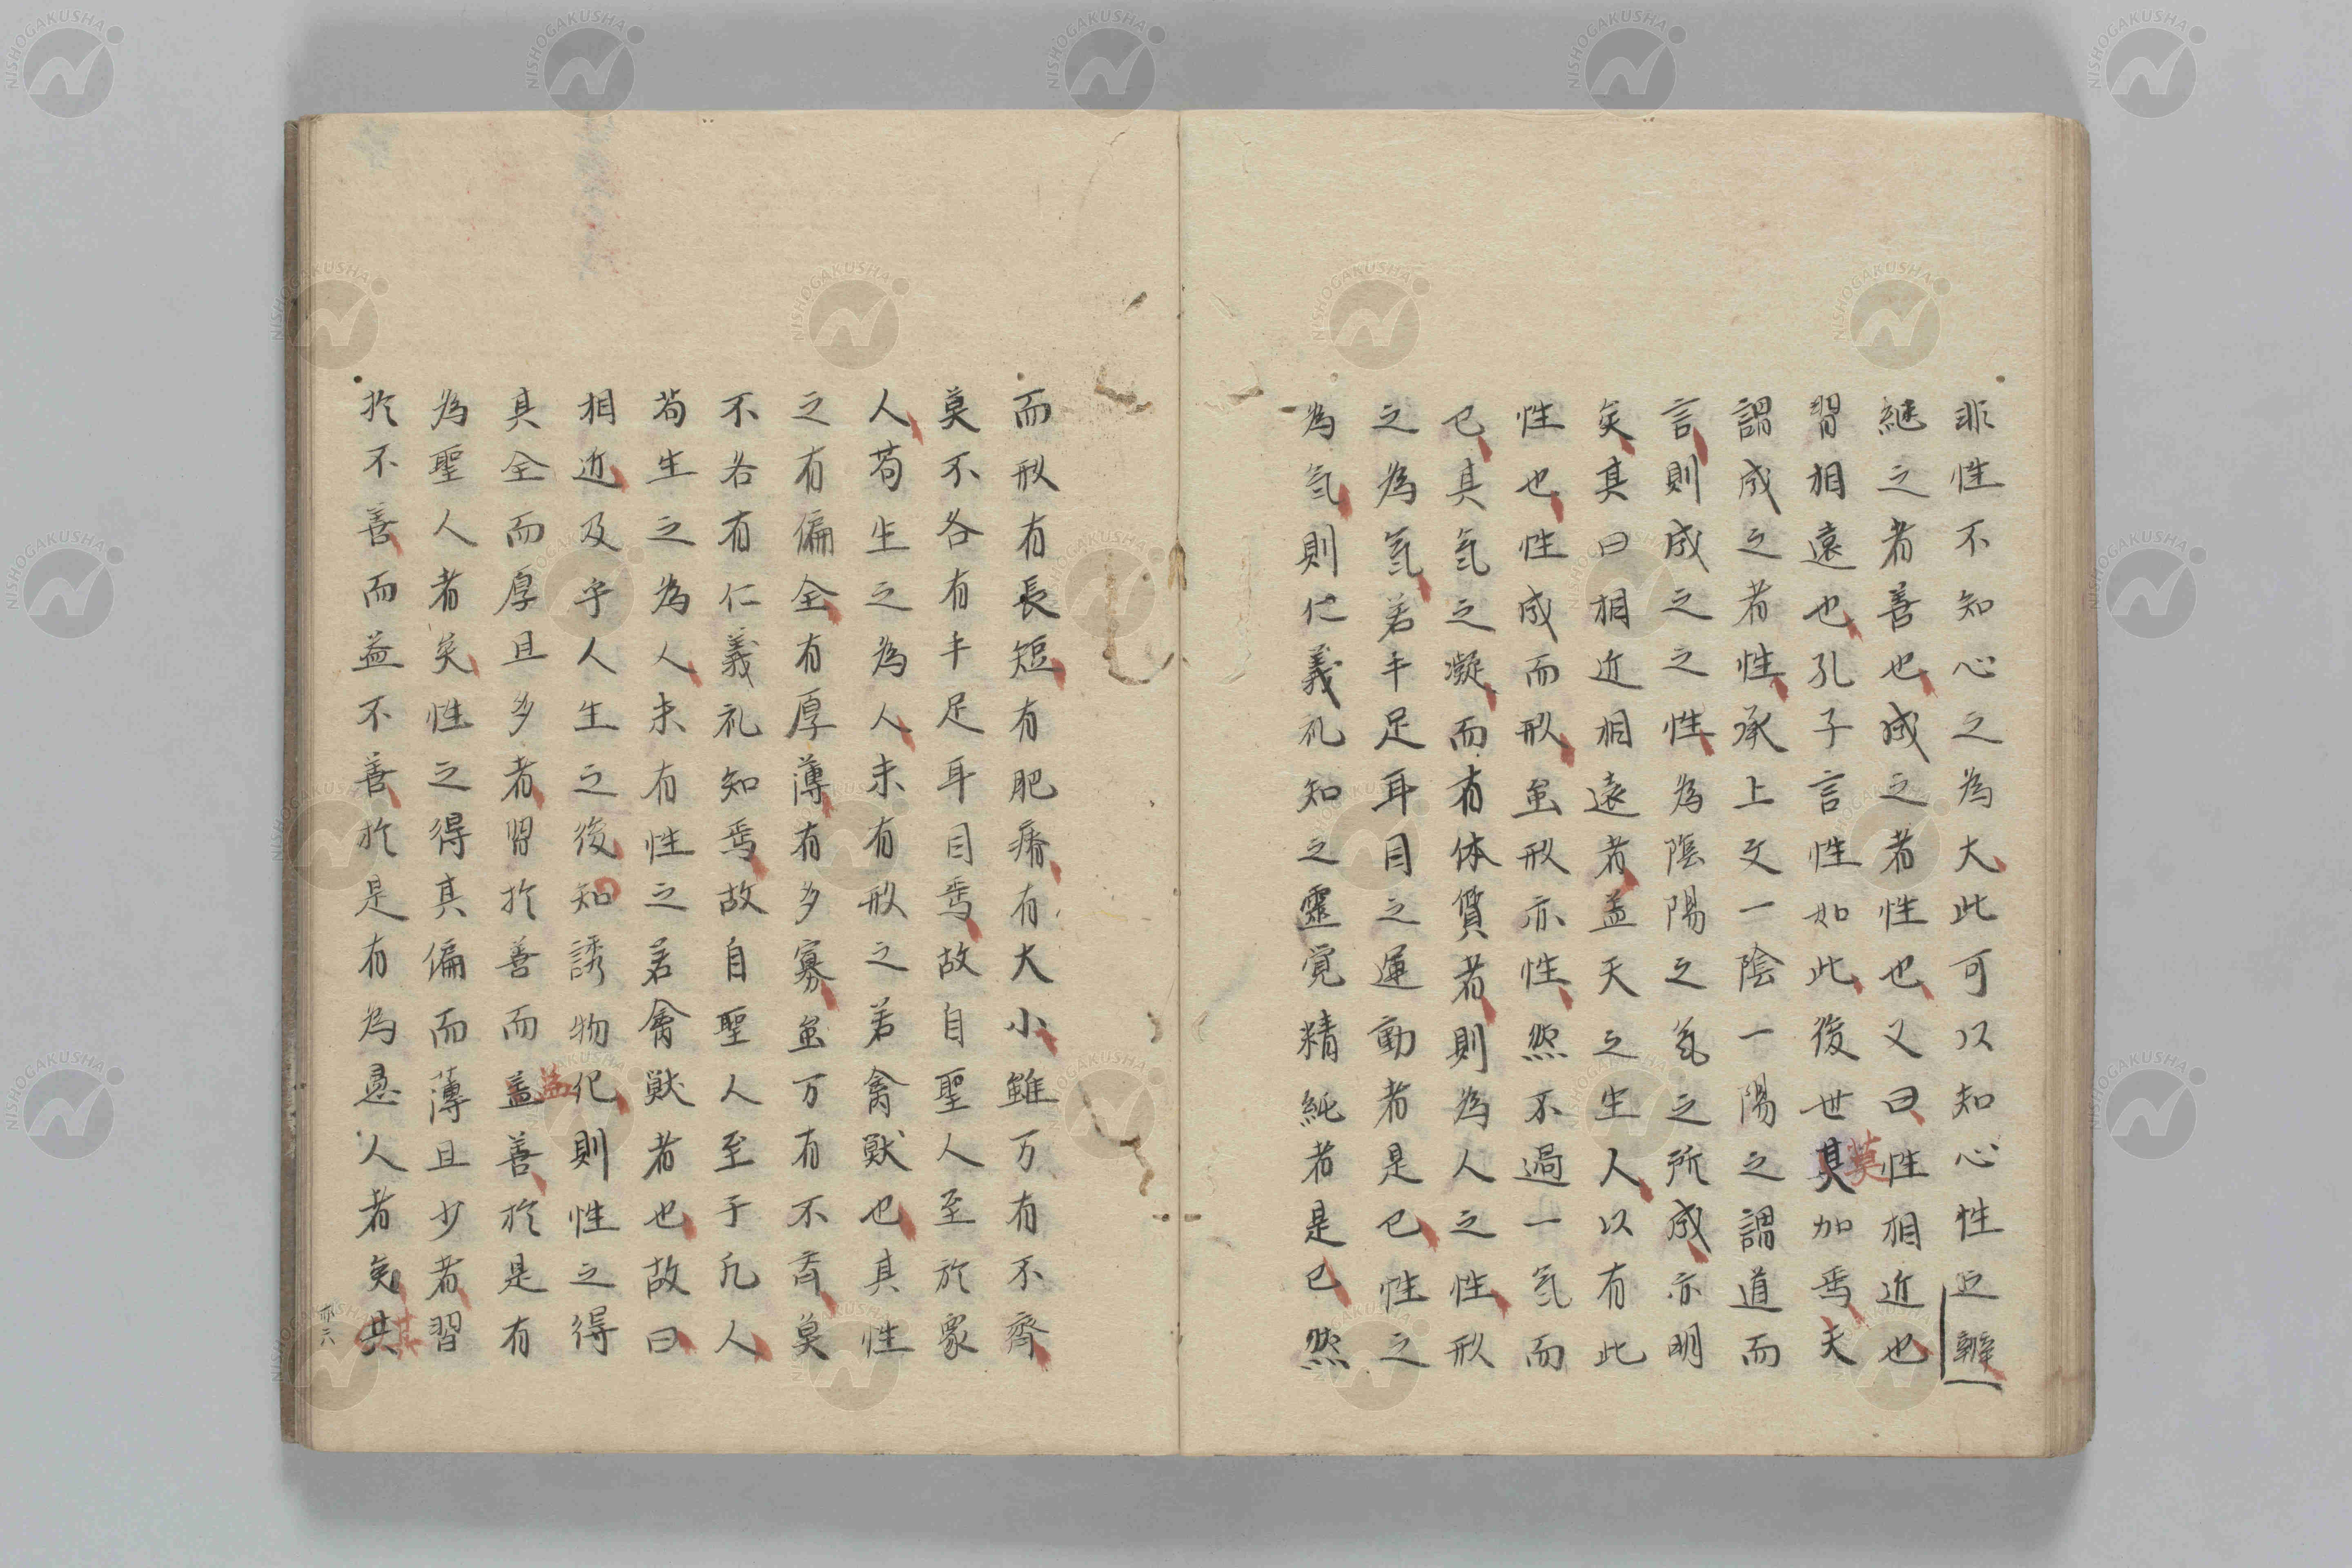 非性不知心之為大此可以知心性之辨
継之者善也成之者性也又曰性相近也
習相遠也孔子言性如此後世莫加焉夫
謂成之者性承上文一陰一陽之謂道而
言則成之之性為陰陽之氣之所成亦明
矣其曰相近相遠者盖天之生人以有此
性也性成而形虽形亦性然不過一氣而
已其氣之凝而有体質者則為人之性形
之為氣若手足耳目之運動者是已性之
為氣則仁義礼知之靈覚精純者是已然
而形有長短有肥瘠有大小雖万有不齊
莫不各有手足耳目焉故自聖人至於衆
人苟生之為人未有形之若禽獣也其性
之有偏全有厚薄有多寡虽万有不斉莫
不各有仁義礼知焉故自聖人至于凡人
苟生之為人未有性之若禽獣者也故曰
相近及乎人生之後知誘物化則性之得
其全而厚且多者習於善而益善於是有
為聖人者矣性之得其偏而薄且少者習
於不善而益不善於是有為愚人者矣其
亦六
NISHOGAKUSHA